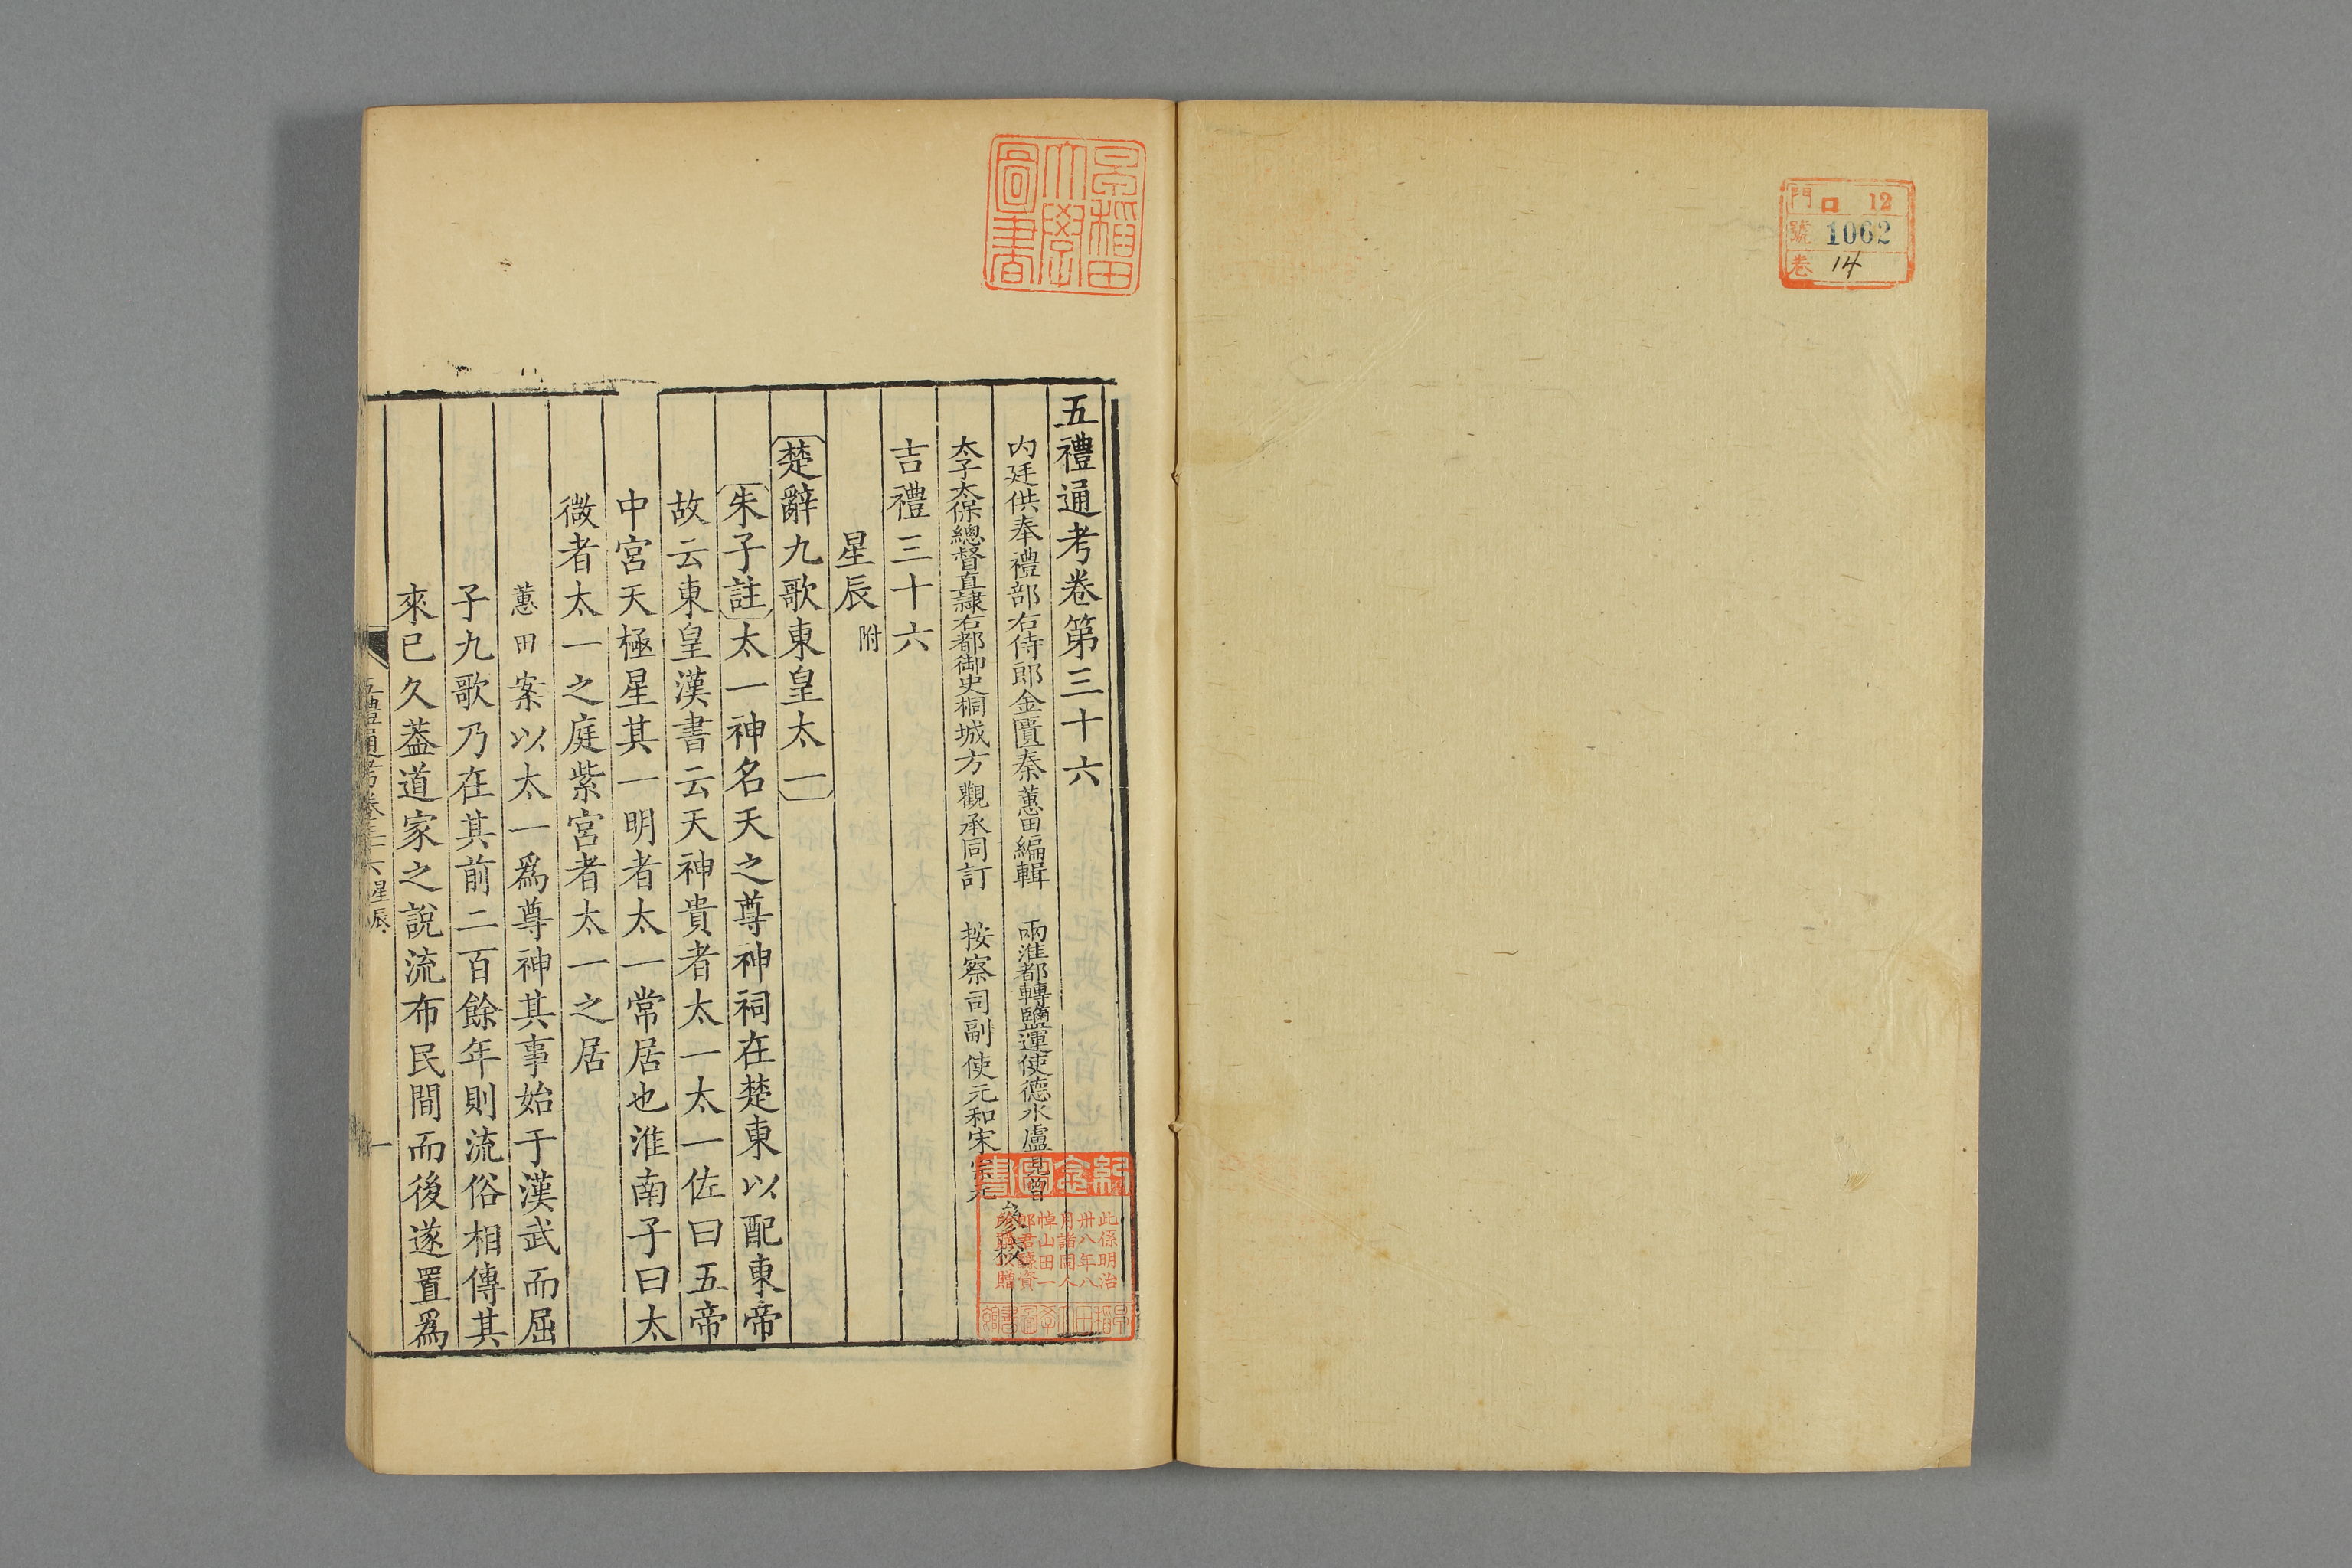 門 ロ 12
號 1062
卷 14
早稲田
大學
圖書
五禮通考卷第三十六
内廷供奉禮部右侍郎金匱秦蕙田編輯 兩淮都轉鹽運使德水盧見曾
太子太保總督直隷右都御史桐城方觀承同訂 按察司副使元和宋宗元
參校
吉禮三十六
星辰附
楚辭九歌東皇太一
朱子註太一神名天之尊神祠在楚東以配東帝
故云東皇漢書云天神貴者太一太一佐曰五帝
中宮天極星其一明者太一常居也淮南子曰太
微者太一之庭紫宮者太一之居
蕙田案以太一爲尊神其事始于漢武而屈
子九歌乃在其前二百餘年則流俗相傳其
來已久葢道家之說流布民間而後遂置爲
五禮通考卷三十六 星辰
一
紀念圖書
此係明治
卅八年八
月諸同人
悼山田一
郎君醵資
贈